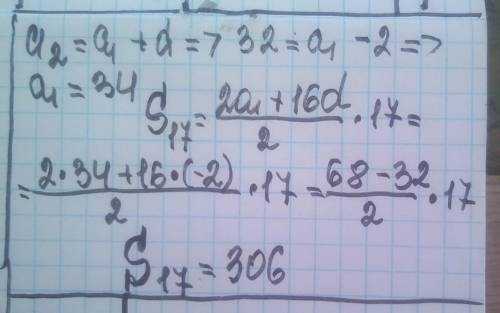 a₂ = a₁ + d => 32 = a₁ - 2 =>
a₁ = 34
S₁₇ = (2a₁ + 16d)/2 · 17 =
= (2·34 + 16·(-2))/2 · 17 = (68 - 32)/2 · 17
S₁₇ = 306